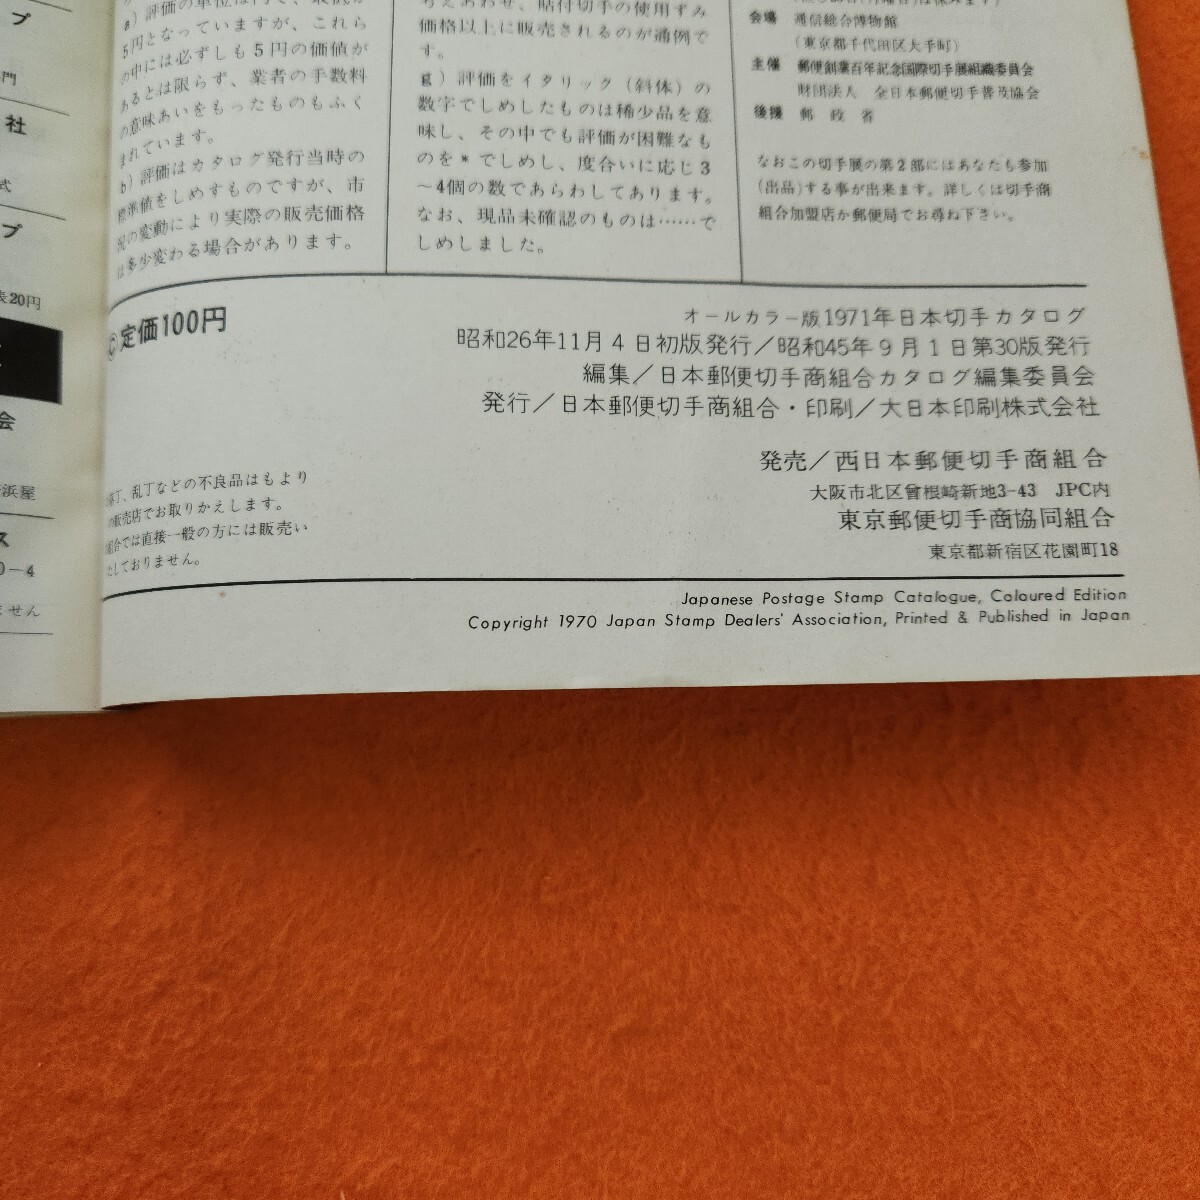 プ
門
社
式
プ
表20円
会
浜屋
ス
0－4
ません
a）評価の単位は円で、最低が
5円となっていますが、これら
の中には必ずしも5円の価値が
あるとは限らず、業者の手数料
の意味あいをもったものもふく
まれています。
b）評価はカタログ発行当時の
標準値をしめすものですが、市
況の変動により実際の販売価格
は多少変わる場合があります。
考えあわせ、貼付切手の使用ずみ
価格以上に販売されるのが通例で
す。
g）評価をイタリック（斜体）の
数字でしめしたものは稀少品を意
味し、その中でも評価が困難なも
のを＊でしめし、度合いに応じ3
～4個の数であらわしてあります。
なお、現品未確認のものは……で
しめしました。
会場 逓信総合博物館
（東京都千代田区大手町）
主催 郵便創業百年記念国際切手展組織委員会
財団法人 全日本郵便切手普及協会
後援 郵政省
なおこの切手展の第2部にはあなたも参加
（出品）する事が出来ます。詳しくは切手商
組合加盟店か郵便局でお尋ね下さい。
©定価100円
オールカラー版1971年日本切手カタログ
昭和26年11月4日初版発行／昭和45年9月1日第30版発行
編集／日本郵便切手商組合カタログ編集委員会
発行／日本郵便切手商組合・印刷／大日本印刷株式会社
発売／西日本郵便切手商組合
大阪市北区曾根崎新地3-43 JPC内
東京郵便切手商協同組合
東京都新宿区花園町18
落丁、乱丁などの不良品はもより
の販売店でお取りかえします。
組合では直接一般の方には販売い
たしておりません。
Japanese Postage Stamp Catalogue, Coloured Edition
Copyright 1970 Japan Stamp Dealers' Association, Printed & Published in Japan